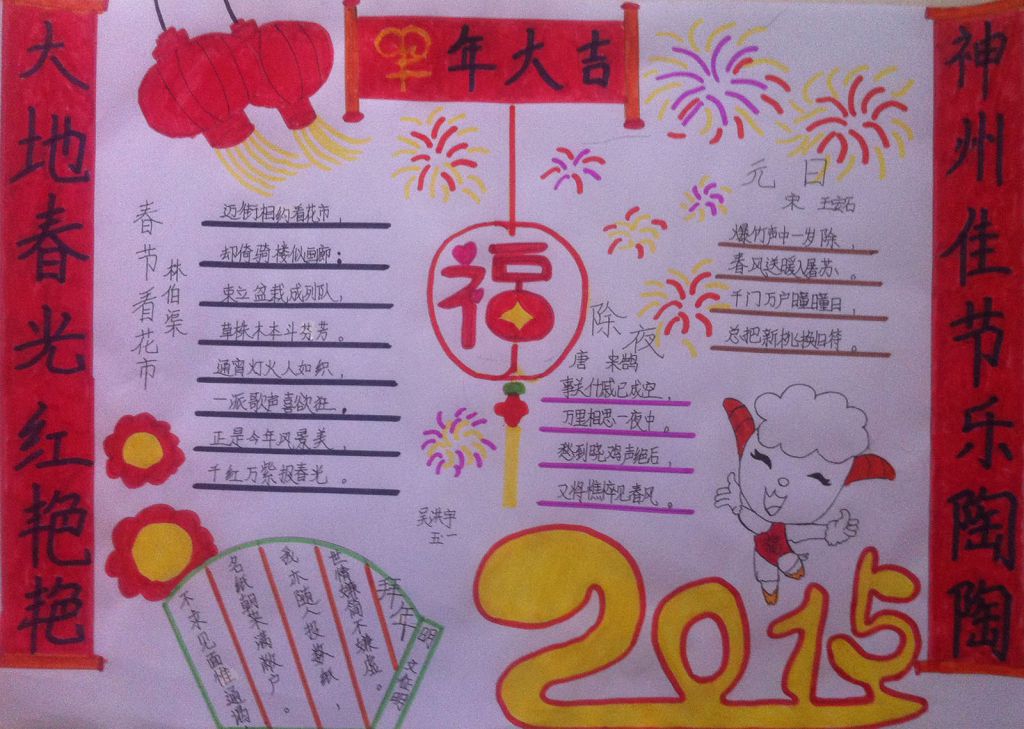 羊年大吉
大地春光红艳艳
神州佳节乐陶陶
春节看花市
林伯渠
迈街相约看花市,
却倚骑楼似画廊:
束立盆栽成列队,
草株木本斗芬芳。
通宵灯火人如织,
一派歌声喜欲狂,
正是今年风景美,
千红万紫报春光。
福
元日
宋 王安石
爆竹声中一岁除,
春风送暖入屠苏。
千门万户曈曈日,
总把新桃换旧符。
除夜
唐 来鹄
事关休戚已成空,
万里相思一夜中。
愁到晓鸡声绝后,
又将憔悴见春风。
吴洪宇
五·一
拜年
明 文征明
不求见面惟通谒
名纸朝来满敝户。
我亦随人投数纸,
世情嫌简不嫌虚。
2015